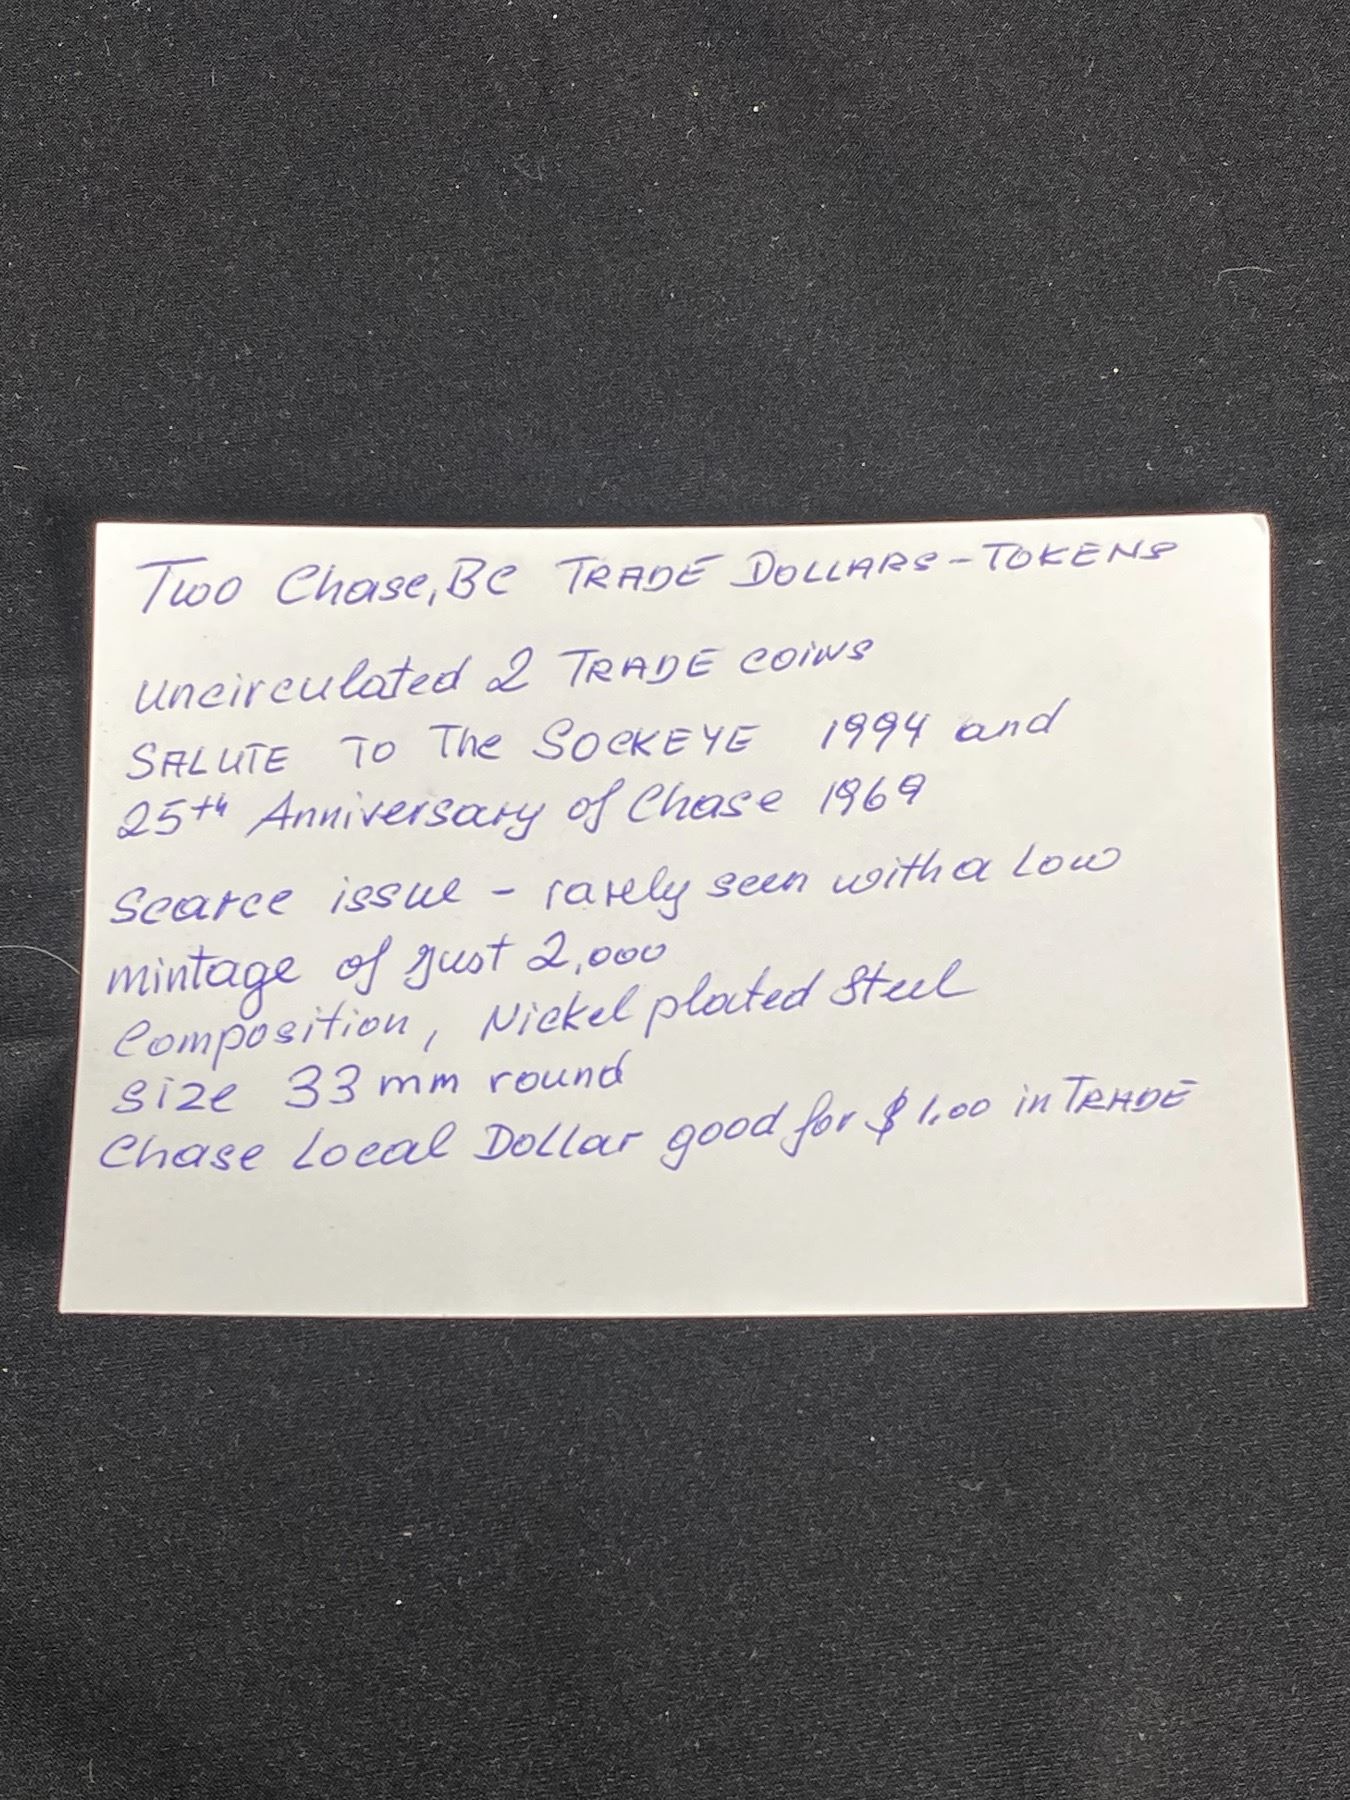 Two Chase, BC TRADE DOLLARS - TOKENS
Uncirculated 2 TRADE COINS
SALUTE TO The SOCKEYE 1994 and
25th Anniversary of Chase 1969
Scarce issue - rarely seen with a Low
mintage of just 2,000
Composition, Nickel plated Steel
Size 33 mm round
Chase Local Dollar good for $1.00 in TRADE